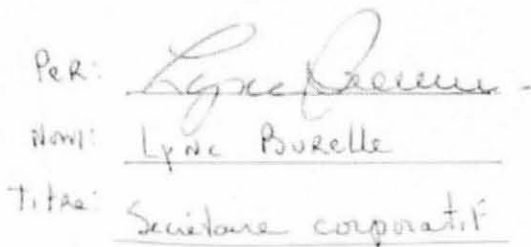 Per:
Nom: Lyne Burelle
Titre: Secrétaire corporatif